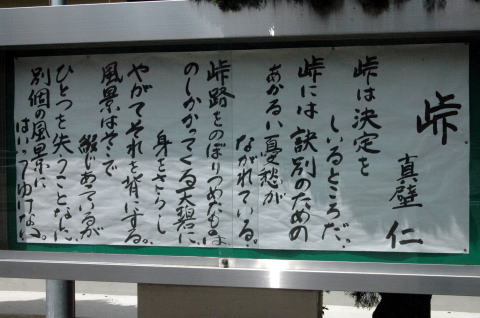 峠
真壁 仁
峠は決定を
しいるところだ。
峠には訣別のための
あかるい憂愁が
ながれている。
峠路をのぼりつめたものは
のしかかってくる天碧に
身をさらし
やがてそれを背にする。
風景はそこで
綴じあっているが
ひとつを失うことなしに
別個の風景に
はいってゆけない。